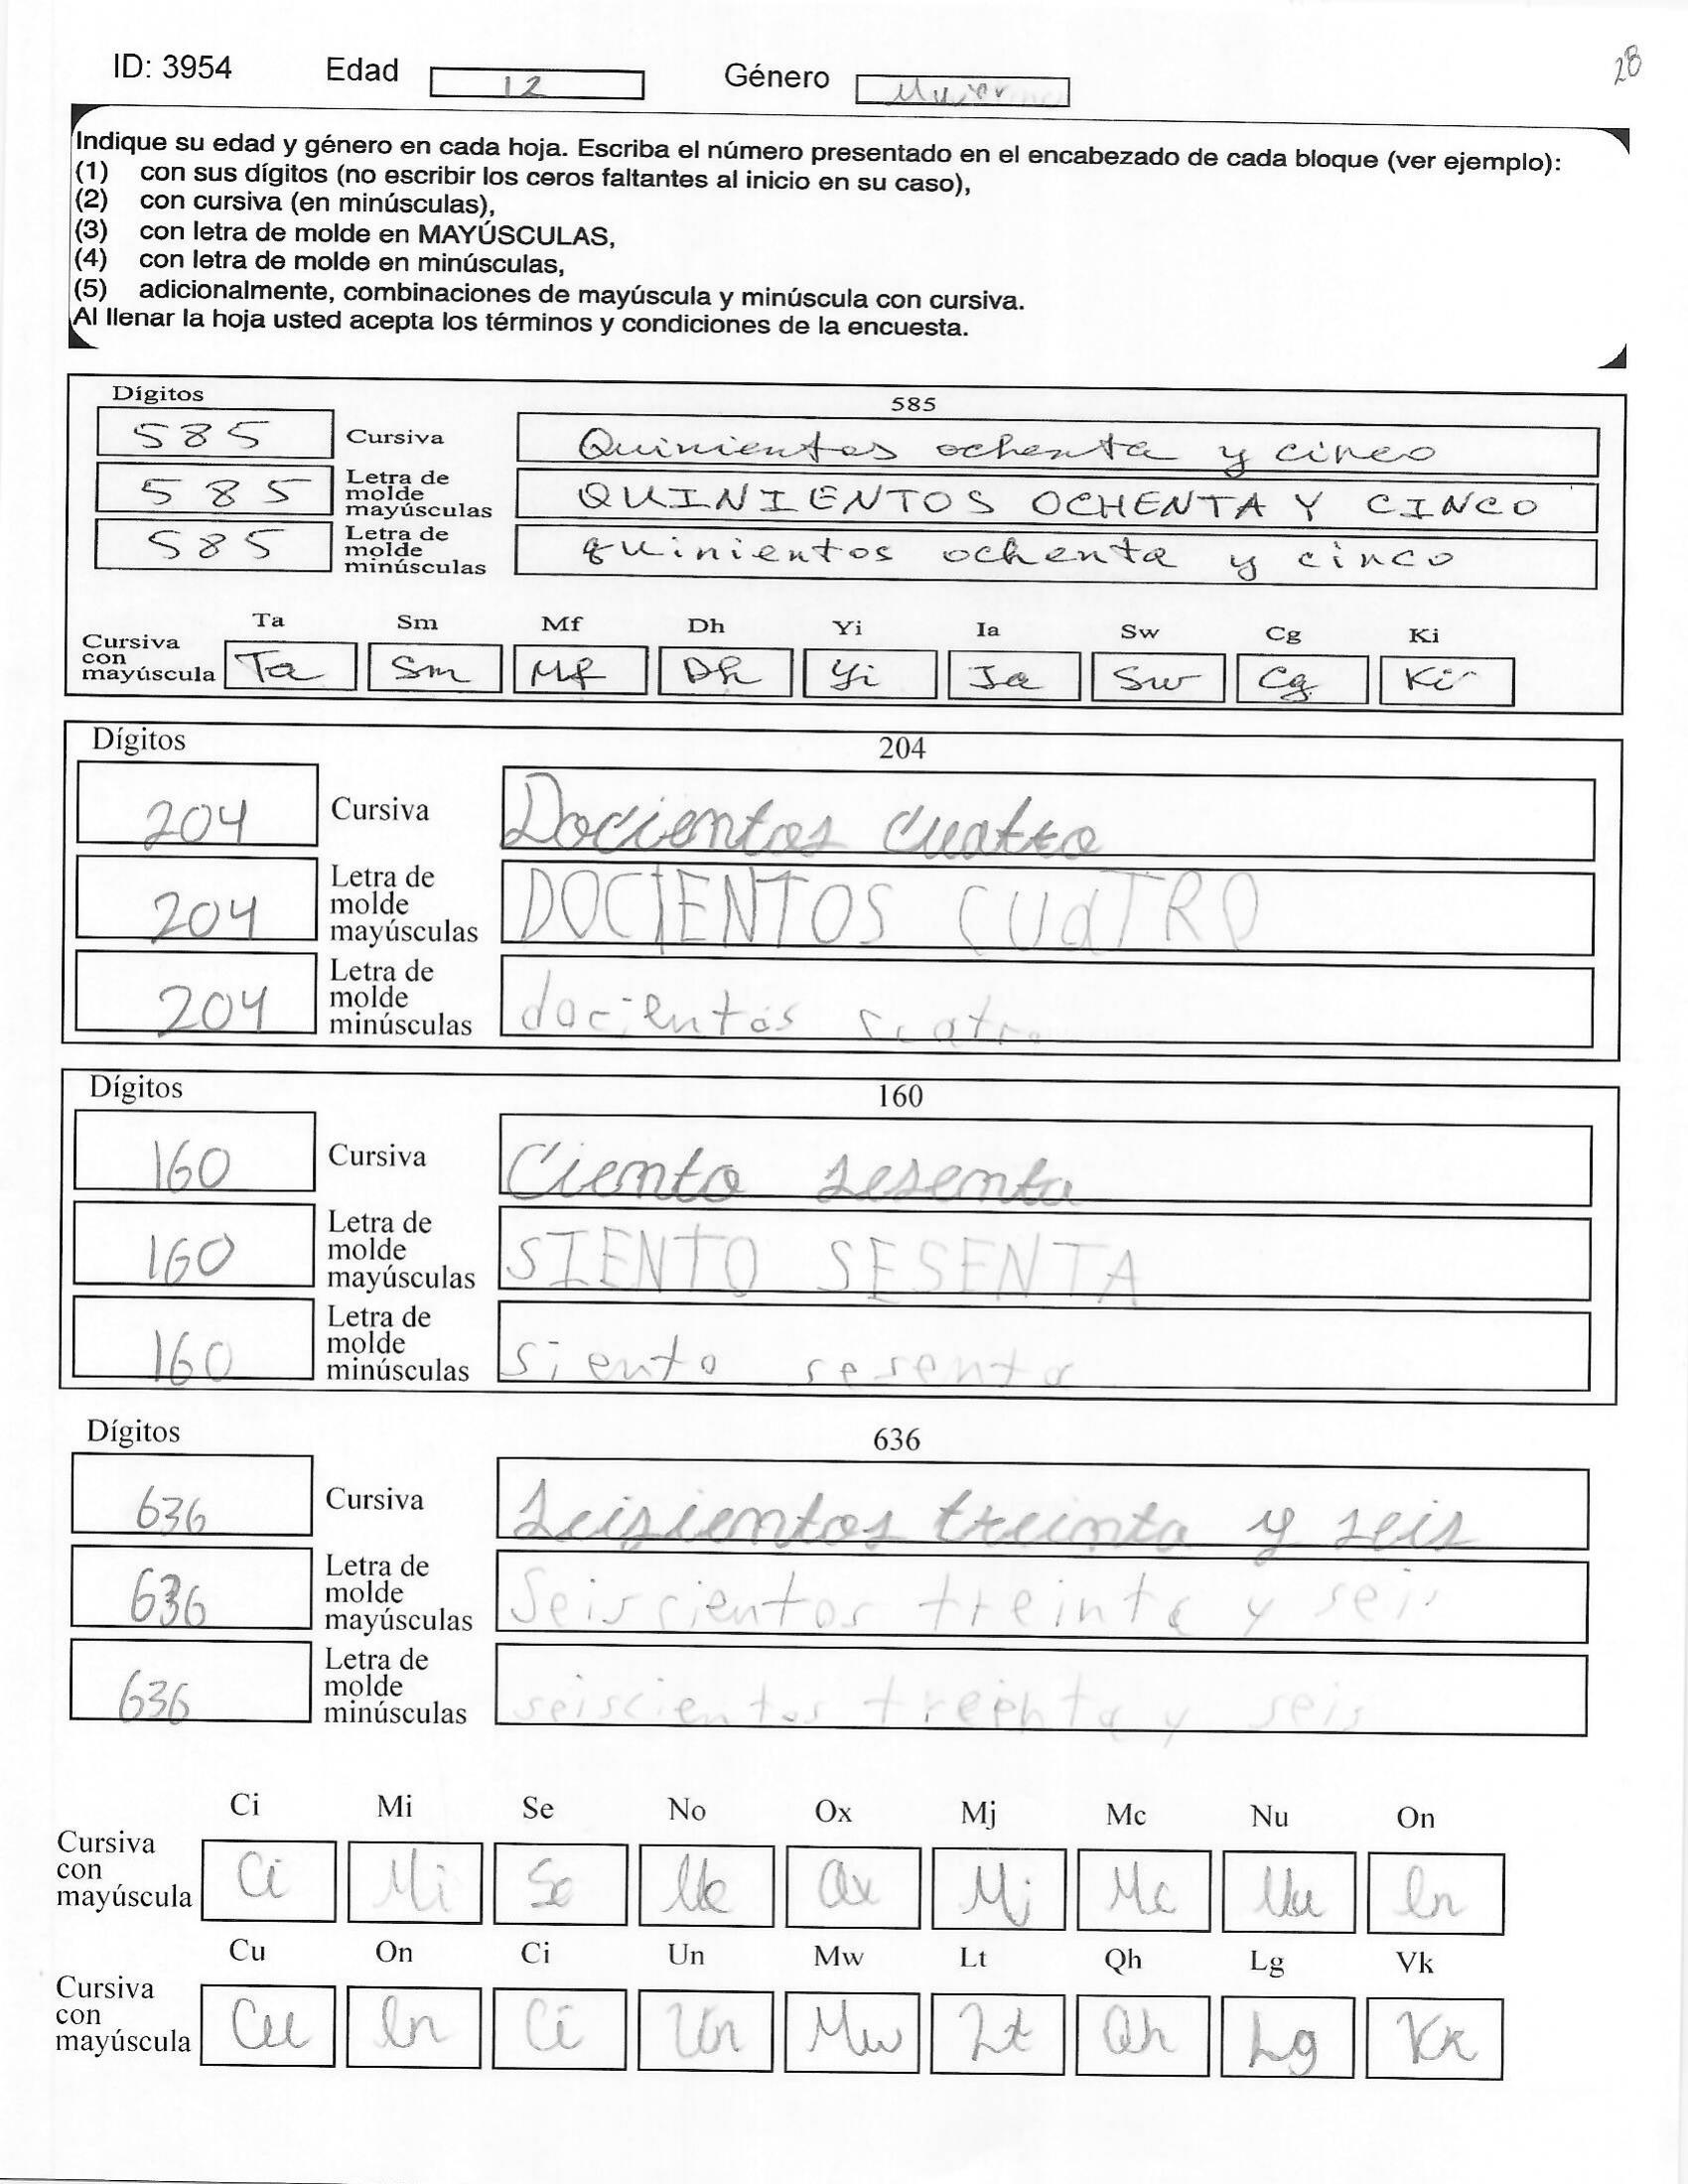 ID: 3954 Edad 12 Género Mujer 28
Indique su edad y género en cada hoja. Escriba el número presentado en el encabezado de cada bloque (ver ejemplo):
(1) con sus dígitos (no escribir los ceros faltantes al inicio en su caso),
(2) con cursiva (en minúsculas),
(3) con letra de molde en MAYÚSCULAS,
(4) con letra de molde en minúsculas,
(5) adicionalmente, combinaciones de mayúscula y minúscula con cursiva.
Al llenar la hoja usted acepta los términos y condiciones de la encuesta.
Dígitos 585
585 Cursiva Quinientos ochenta y cinco
585 Letra de molde mayúsculas QUINIENTOS OCHENTA Y CINCO
585 Letra de molde minúsculas quinientos ochenta y cinco
Ta Sm Mf Dh Yi Ia Sw Cg Ki
Cursiva con mayúscula Ta Sm Mf Dh Yi Ia Sw Cg Ki
Dígitos 204
204 Cursiva Docientos cuatro
204 Letra de molde mayúsculas DOCIENTOS CUaTRO
204 Letra de molde minúsculas docientos cuatro
Dígitos 160
160 Cursiva Ciento sesenta
160 Letra de molde mayúsculas SIENTO SESENTA
160 Letra de molde minúsculas siento sesenta
Dígitos 636
636 Cursiva seisientos treinta y seis
636 Letra de molde mayúsculas Seiscientos treinta y seis
636 Letra de molde minúsculas seiscientos treinta y seis
Ci Mi Se No Ox Mj Mc Nu On
Cursiva con mayúscula Ci Mi Se No Ox Mj Mc Nu On
Cu On Ci Un Mw Lt Qh Lg Vk
Cursiva con mayúscula Cu On Ci Un Mw Lt Qh Lg Vk